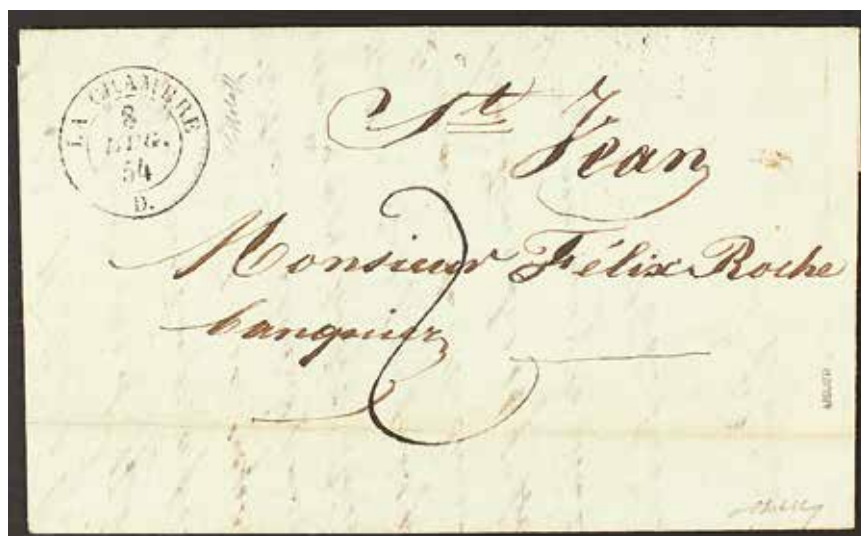 LA CHAMBRE
8
54
D.
St Jean
2
Monsieur Félix Roche
banquier